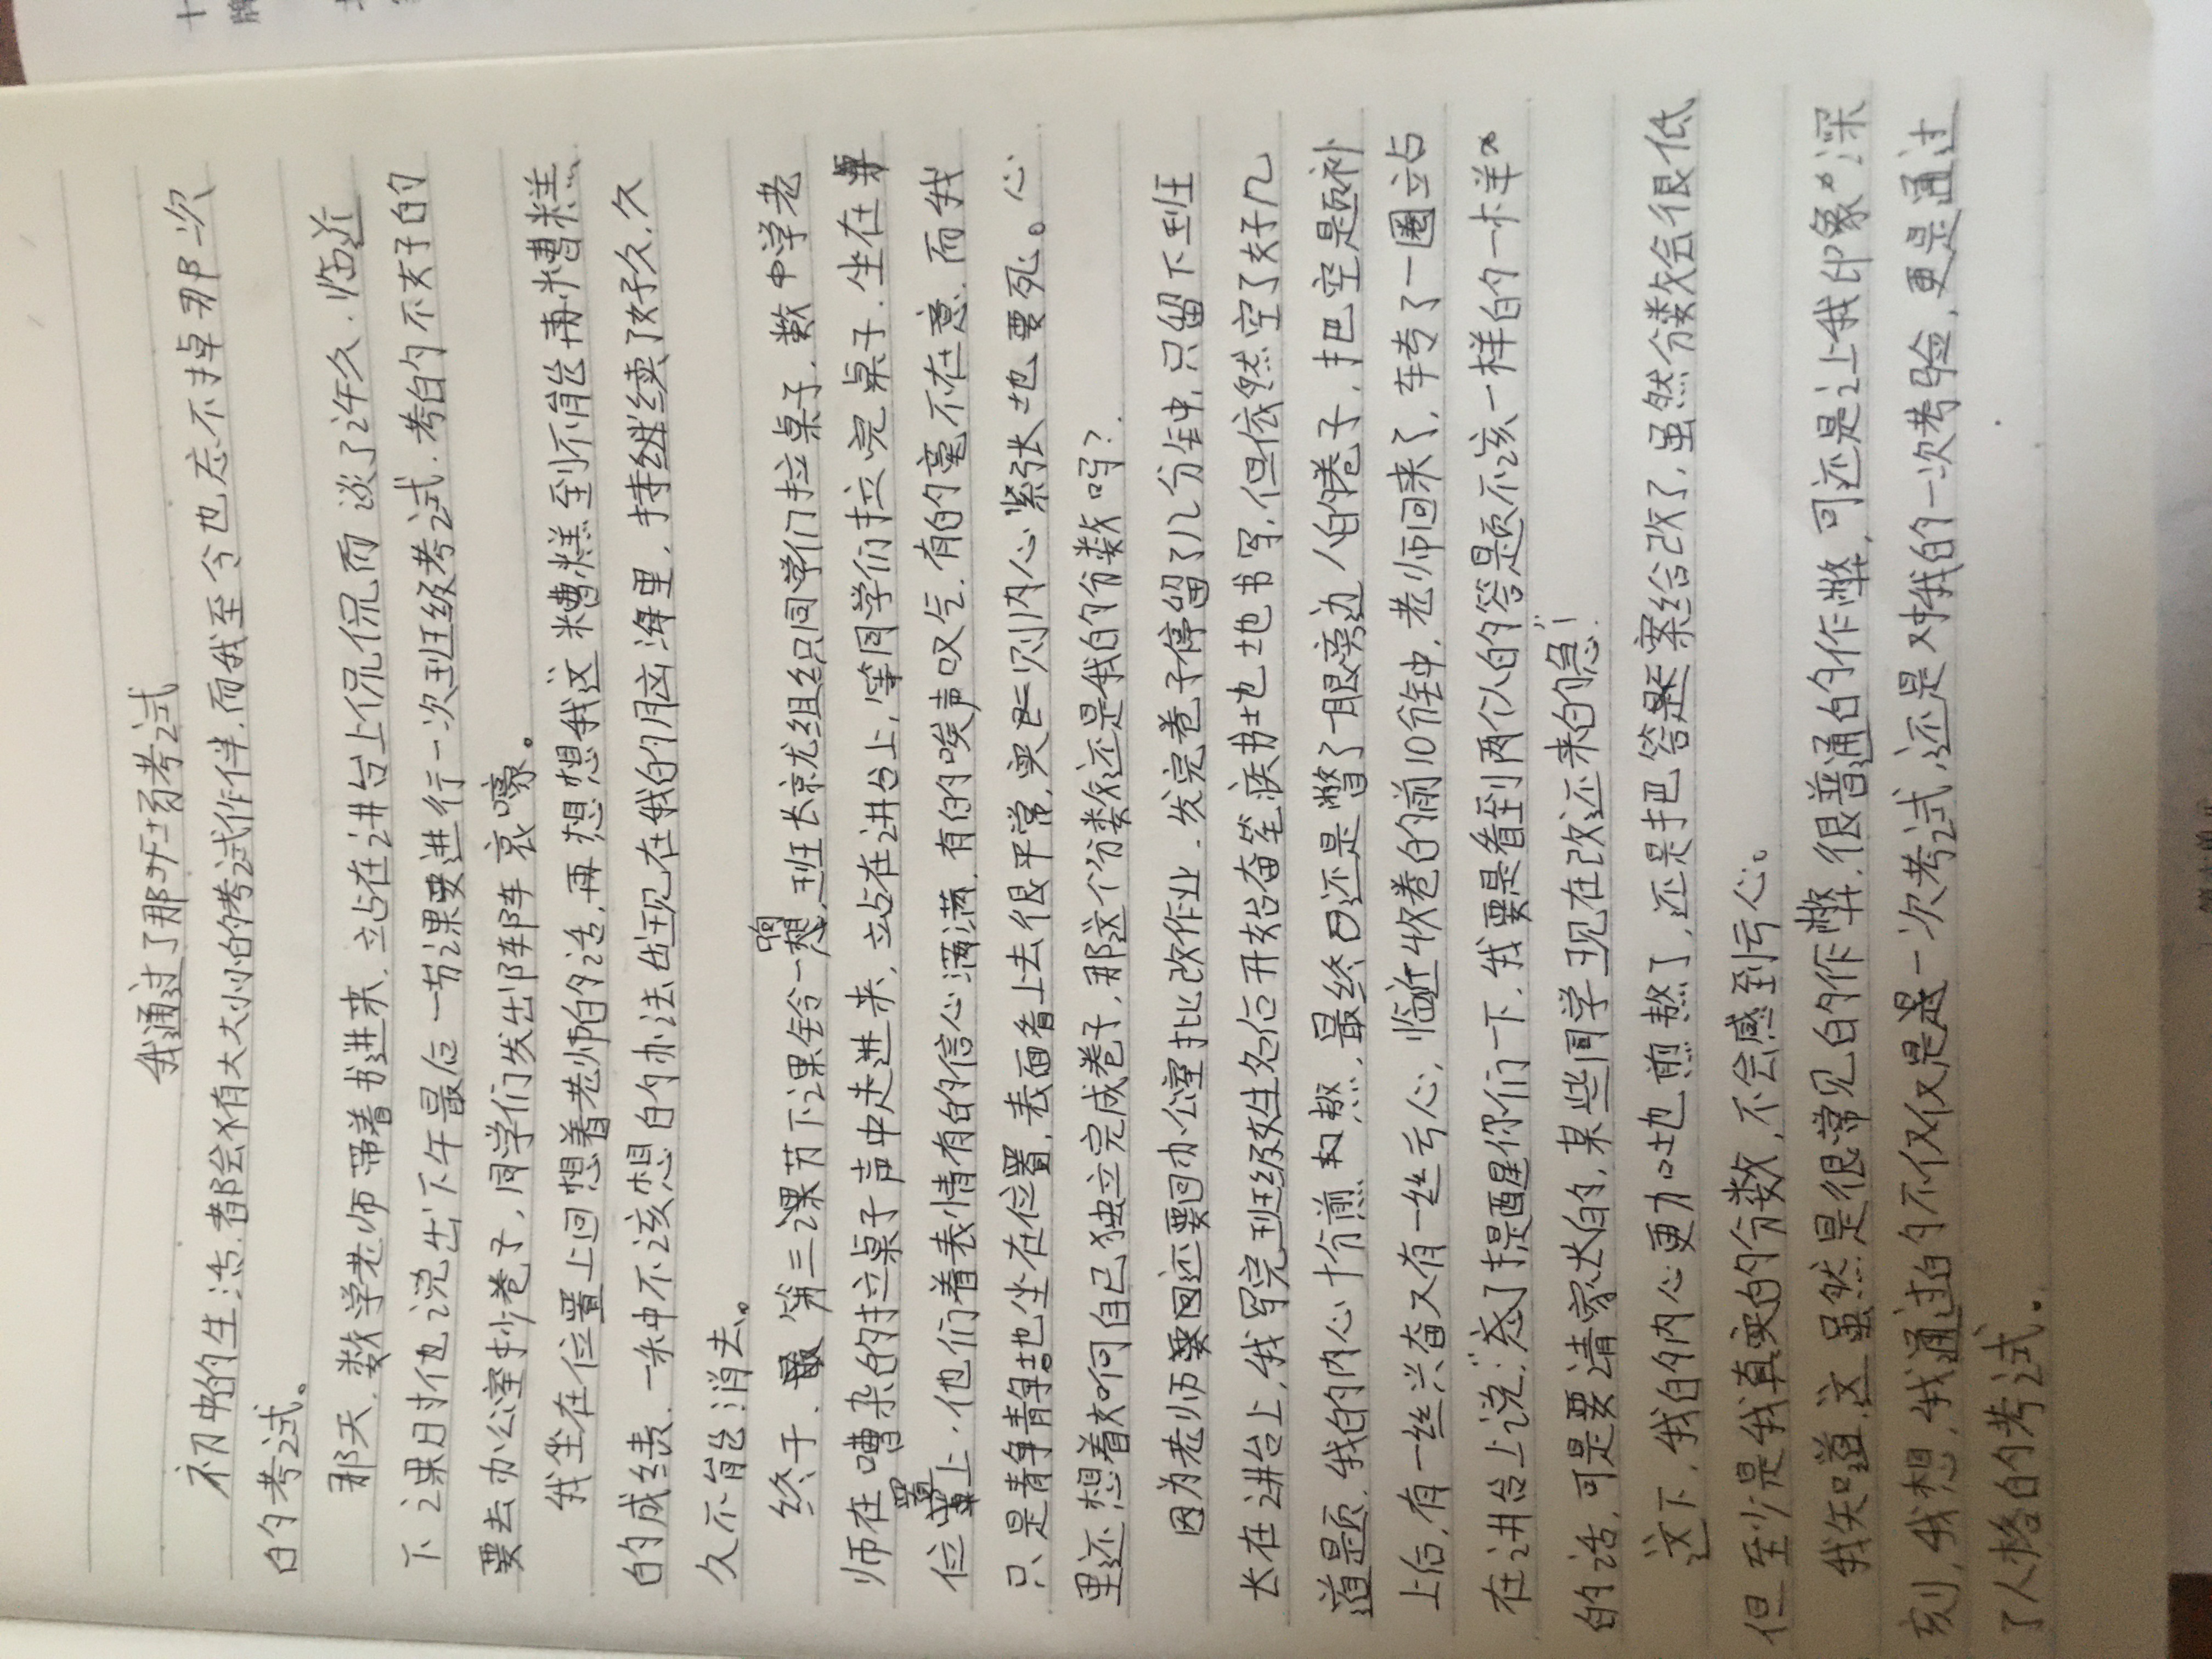 我通过了那场考试
初中的生活,都会有大大小小的考试作伴,而我至今也忘不掉那一次
的考试。
那天,数学老师带着书进来,站在讲台上侃侃而谈了许久,临近
下课时他说出下午最后一节课要进行一次班级考试,考的不好的
要去办公室抄卷子,同学们发出阵阵哀嚎。
我坐在位置上回想着老师的话,再想想我这糟糕至到不能再糟糕
的成绩,一种不该想的办法出现在我的脑海里,持续续了好久,久
久不能消去。
终于,第三课节下课铃一响,班长就组织同学们拉桌子,数中学老
师在嘈杂的拉桌子声中走进来,站在讲台上,等同学们拉完桌子,坐在
位置上,他们着表情有的信心满满,有的唉声叹气,有的毫不在意,而我
只是静静地坐在位置,表面看上去很平常,实则内心紧张地要死。心
里还想着如何自己独立完成卷子,那这个分数还是我的分数吗?
因为老师要回还要回办公室批改作业,发完卷子停留了几分钟,只留下班
长在讲台上,我写完班级姓名后开始奋笔疾书地地书写,但依然空了好几
道题,我的内心十分煎熬,最终还是瞥了眼旁边人的卷子,把空题补
上后,有一丝兴奋又有一丝亏心,临近收卷的前10分钟,老师回来了,转了一圈站
在讲台上说:“忘了提醒你们一下,我要是看到两份人的答题不该一样的一样
的话,可是要请家长的,某些同学现在改还来的急!”
这下,我的内心更加地煎熬了,还是把答案给改了,虽然分数会很低
但至少是我真实的分数,不会感到亏心。
我知道,这虽然是很常见的作弊,很普通的作弊,可还是让我印象深
刻,我想,我通过的不仅仅是一次考试,还是对我的一次考验,更是通过
了人格的考试。